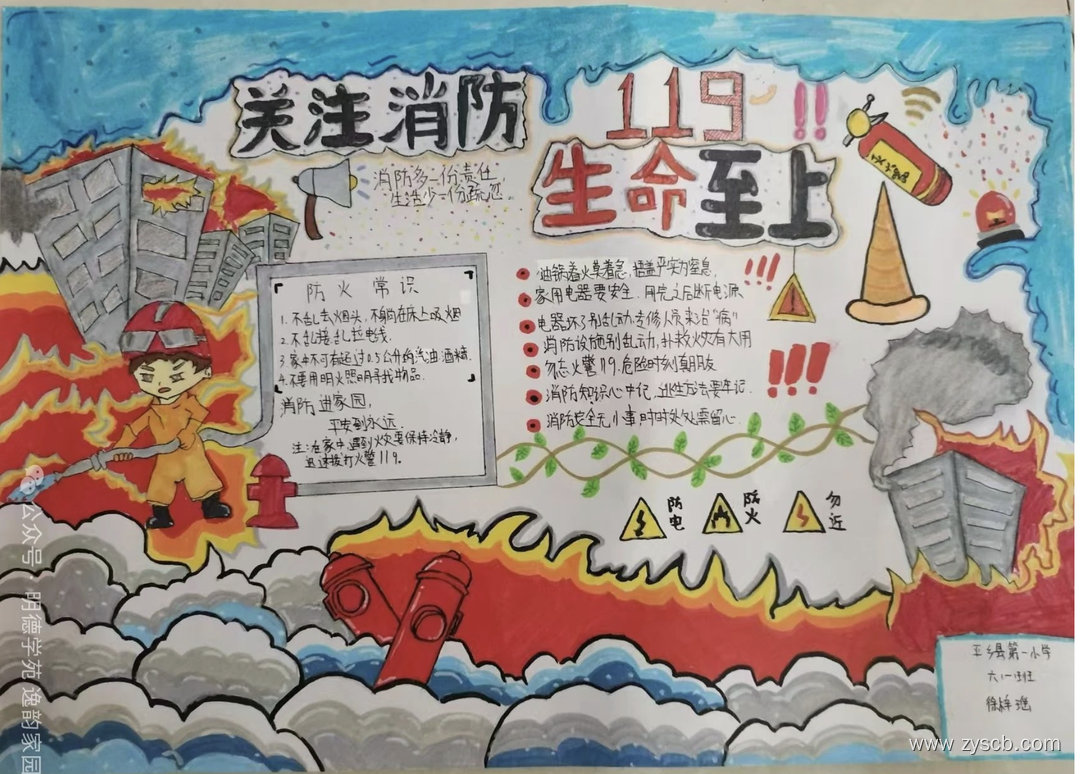 关注消防
119!!
生命至上
消防多一份责任
生活少一份疏忽。
灭火器
防火常识
1.不乱丢烟头,不躺在床上吸烟
2.不乱接乱拉电线.
3.家中不可存放超过0.5公斤的汽油酒精.
4.不要用明火照明寻找物品.
消防进家园,
平安到永远.
注:在家中遇到火灾要保持冷静,
且速拨打火警119。
油锅着火莫着急,捂盖严实为窒息,
家用电器要安全,用完之后断电源
电器坏了别乱动,专修人员来治“病”
消防设施别乱动,扑救火灾有大用
勿忘火警119.危险时刻真朋友
消防知识心中记,逃生方法要牢记.
消防安全无小事,时时处处需留心.
!!!
!!!
防电
防火
勿近
平乡县第一小学
六(一)班
公众号 明德学苑逸韵家园
www.zyscb.com